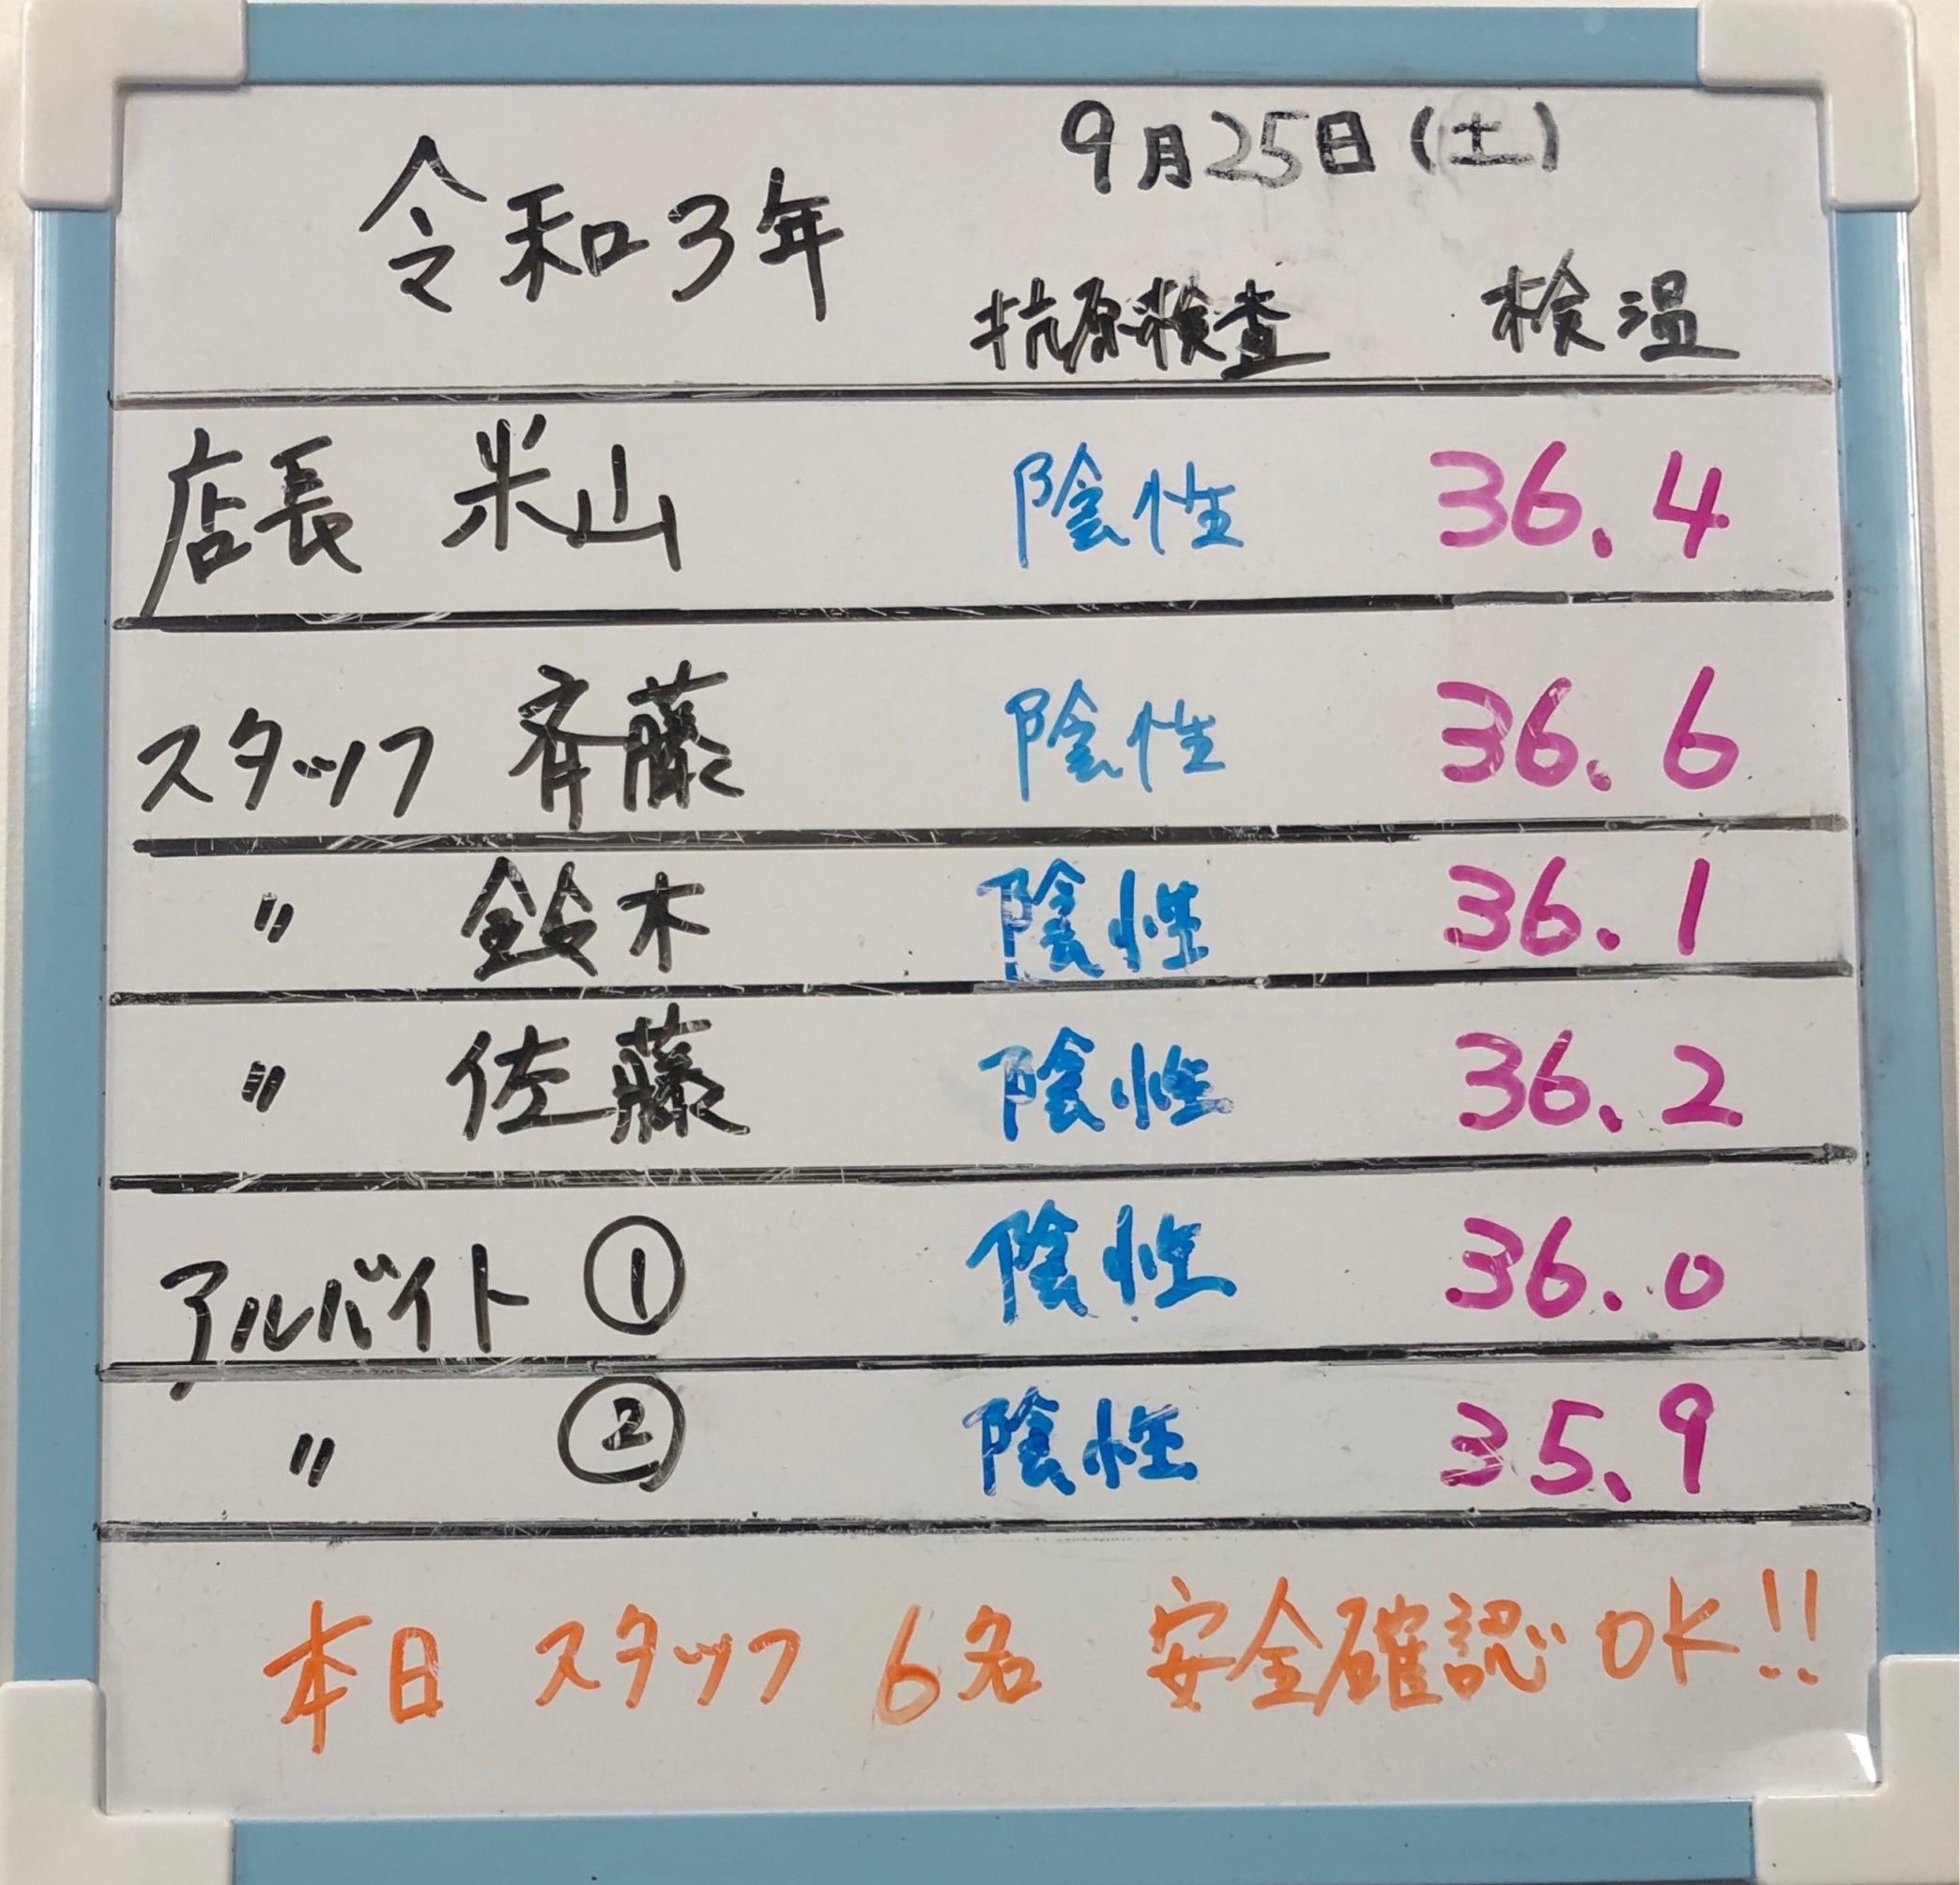 令和3年 9月25日(土)
抗原検査 検温
店長 米山 陰性 36.4
スタッフ 斉藤 陰性 36.6
〃 鈴木 陰性 36.1
〃 佐藤 陰性 36.2
アルバイト ① 陰性 36.0
〃 ② 陰性 35.9
本日 スタッフ 6名 安全確認 OK!!